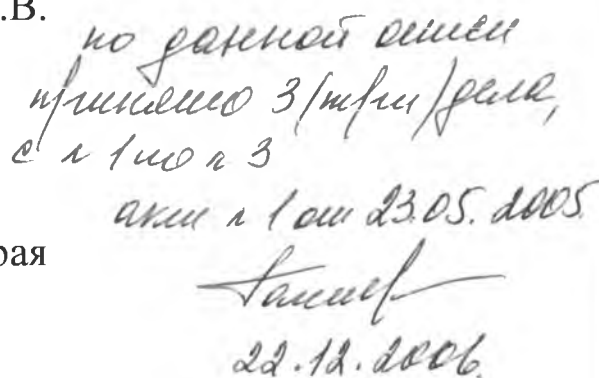 .В.
по данной описи
принято 3 /три/ дела,
с № 1 по № 3
акт № 1 от 23.05.2005
рая
22.12.2006.